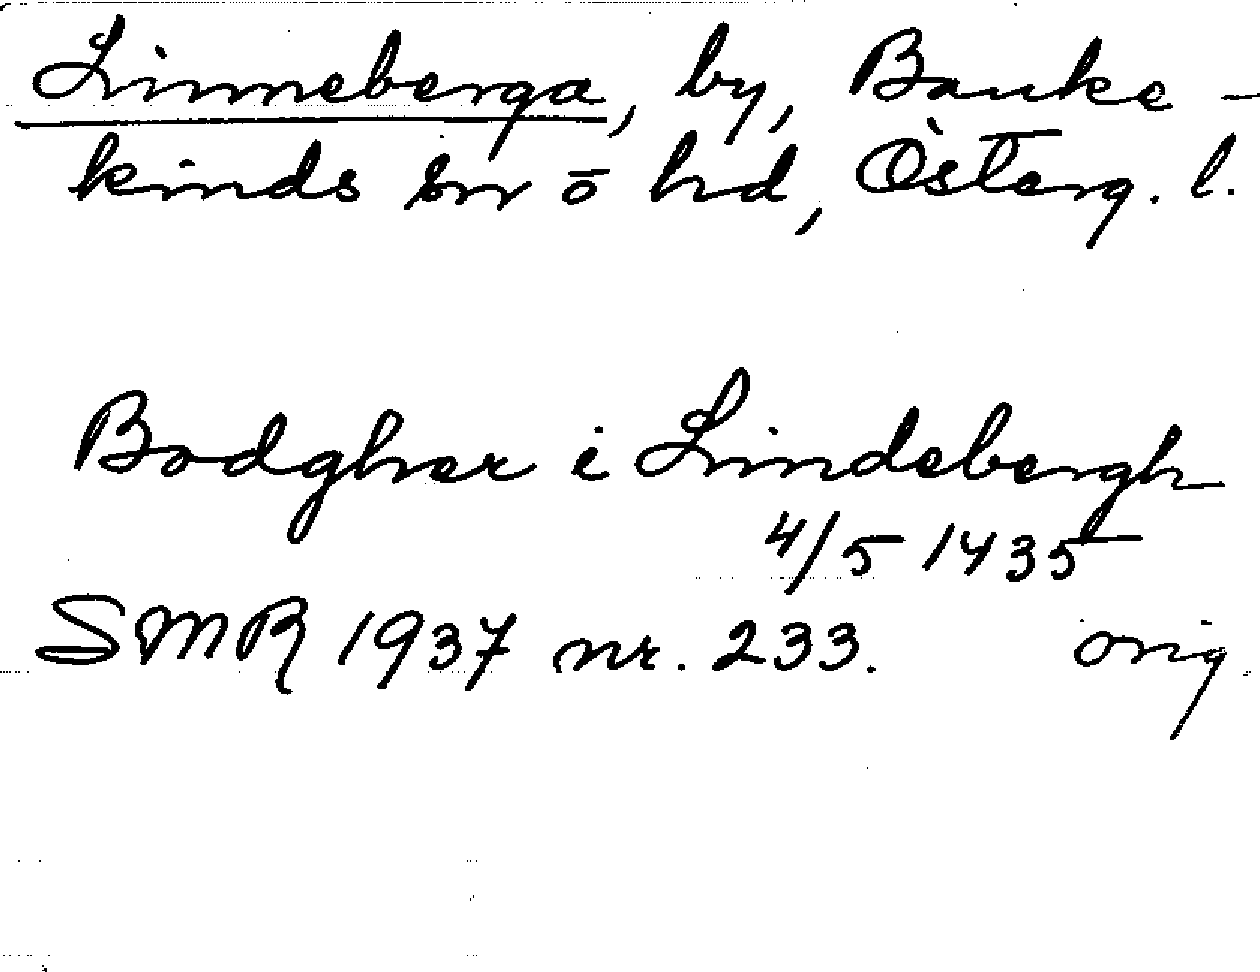 Linneberga, by, Banke-
kinds sn ō hd, Österg. l.
Bodgher i Lindebergh
4/5 1435
SMR 1937 nr. 233. orig.